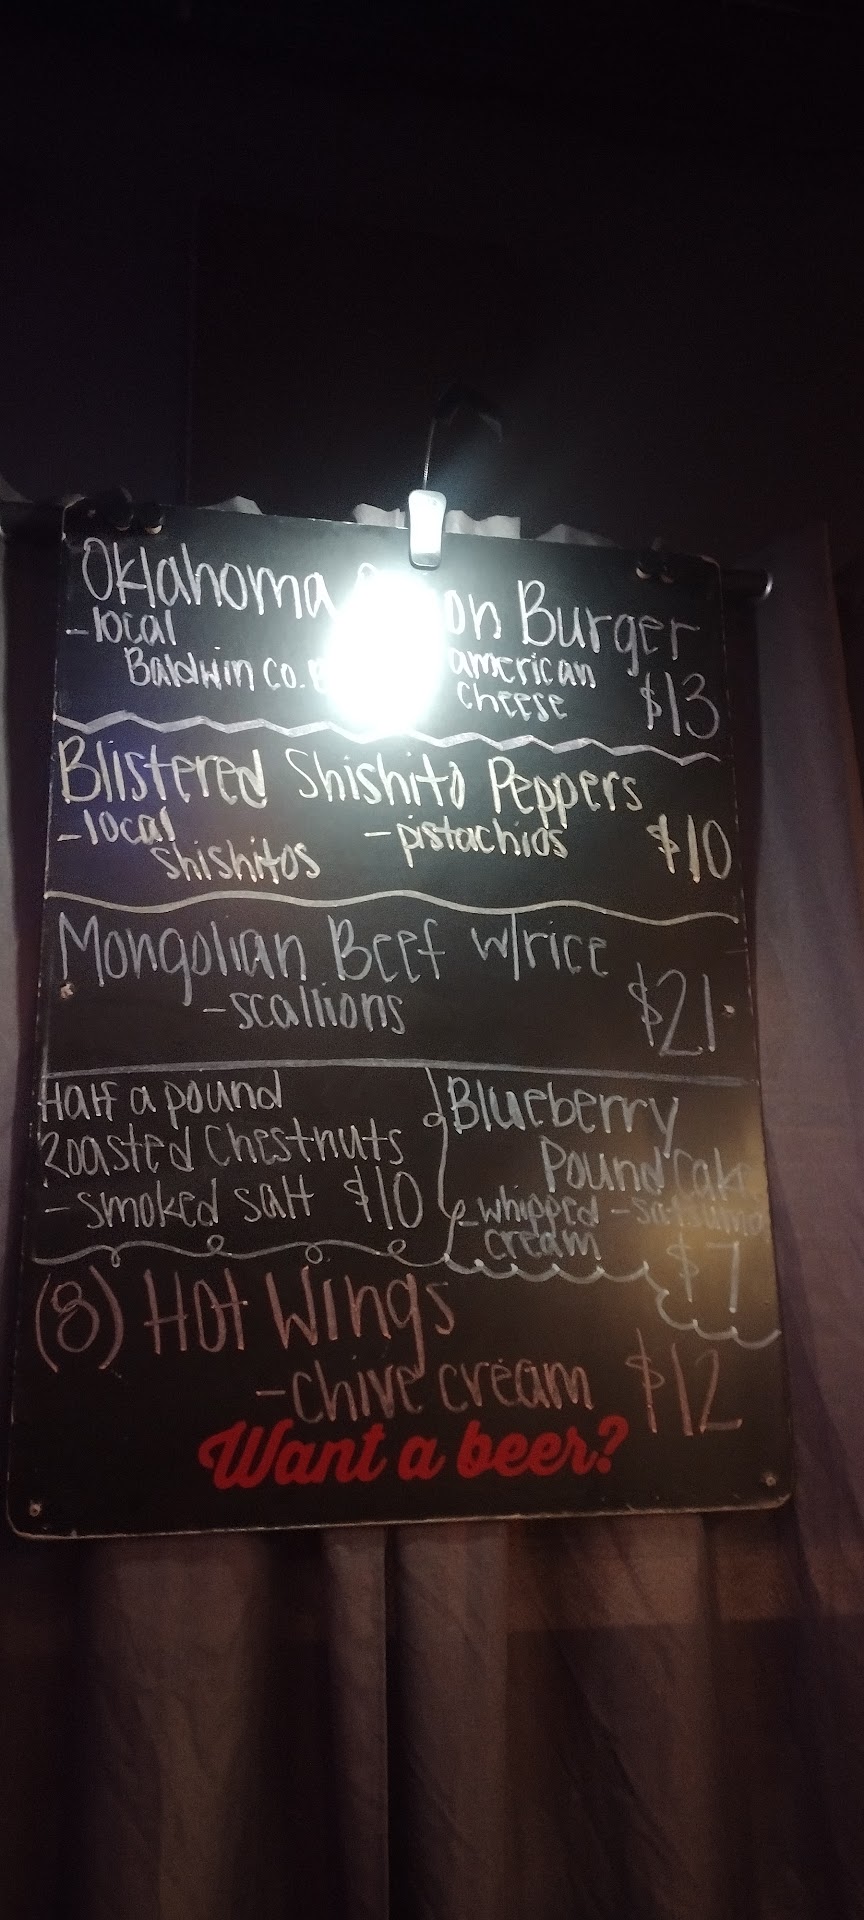 Oklahoma Burger
-local
Baldwin Co. american
cheese $13
Blistered Shishito Peppers
-local -pistachios $10
shishitos
Mongolian Beef w/rice
-scallions $21
Half a pound
Roasted Chestnuts
-smoked salt $10
Blueberry
Pound Cake
-whipped -satsuma
cream $7
(8) Hot Wings
-chive cream $12
Want a beer?